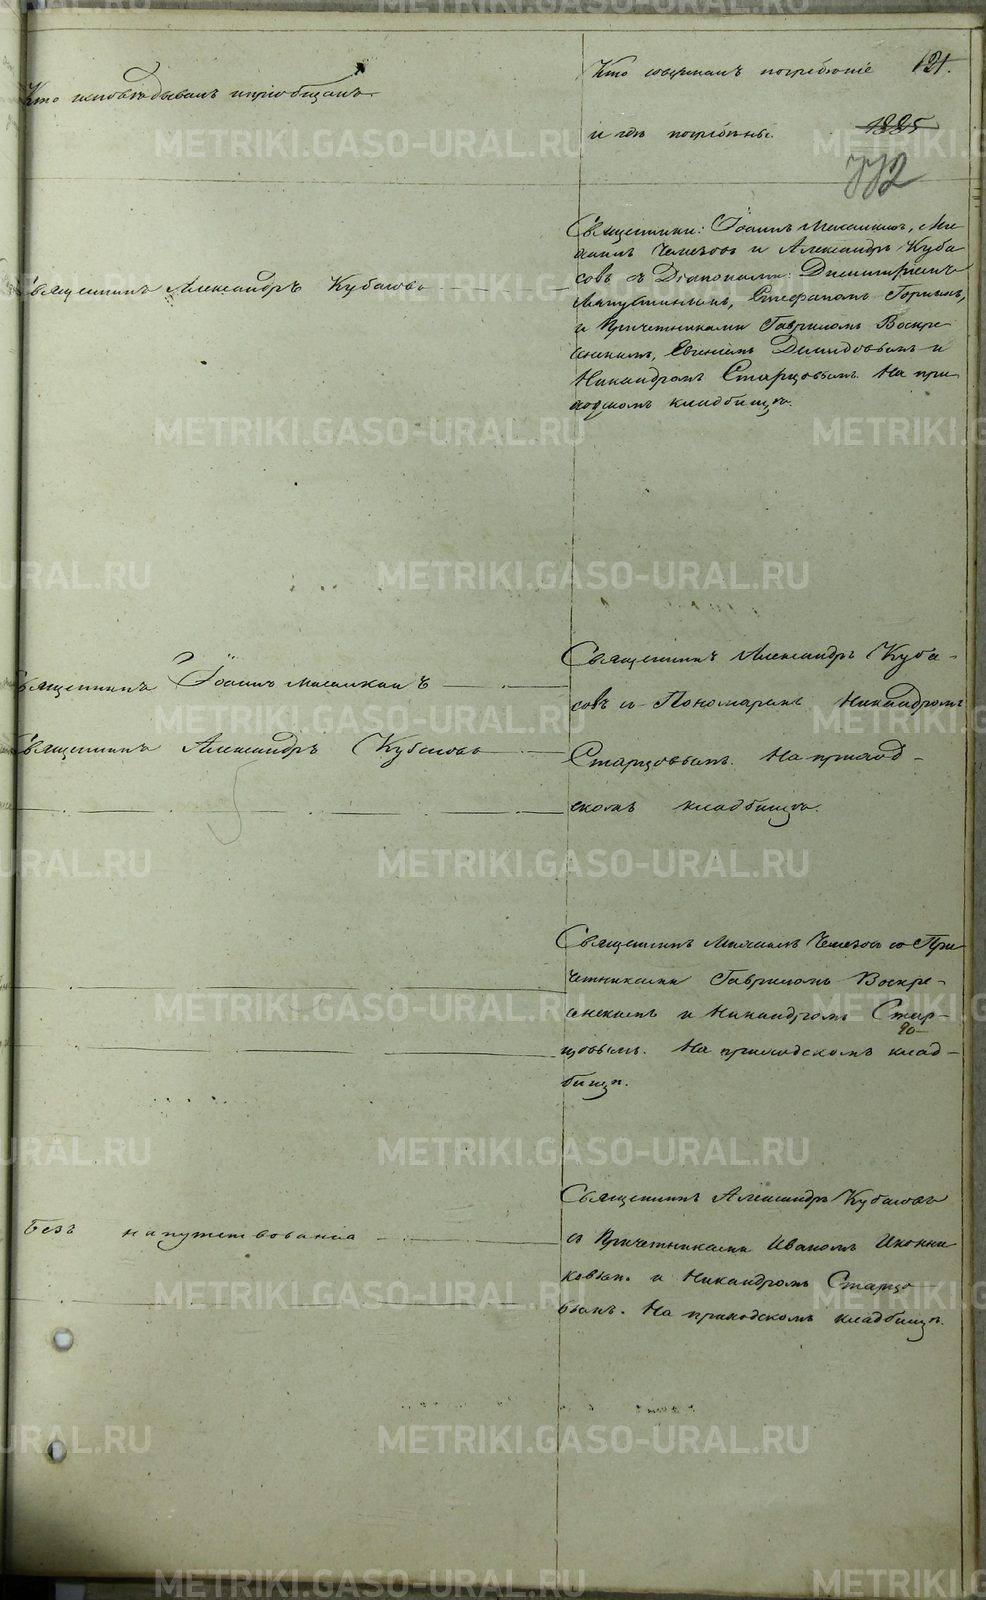 Кто исповѣдывалъ и пріобщалъ
Кто совершалъ погребеніе
и гдѣ погребены.
121.
1885
772
Священникъ Александръ Кубасовъ
Священники: Іоаннъ
и Александръ Куба
совъ съ Діаконами: Димитріемъ
Стефаномъ
и Причетниками Гавриломъ Воскре
сенскимъ, Евгеніемъ Демидовымъ и
Никандромъ Старцовымъ. На при
ходскомъ кладбищѣ.
Священникъ Іоаннъ
Священникъ Александръ Кубасовъ
Священникъ Александръ Куба-
совъ съ Пономаремъ Никандромъ
Старцовымъ. На приход-
скомъ кладбищѣ.
Священникъ Михаилъ со При
четниками Гавриломъ Воскре-
сенскимъ и Никандромъ Стар-
цовымъ. На приходскомъ клад-
бищѣ.
Безъ напутствованія
Священникъ Александръ Кубасовъ
съ Причетниками Иваномъ Иконни
ковымъ и Никандромъ Старцо
вымъ. На приходскомъ кладбищѣ.
METRIKI.GASO-URAL.RU